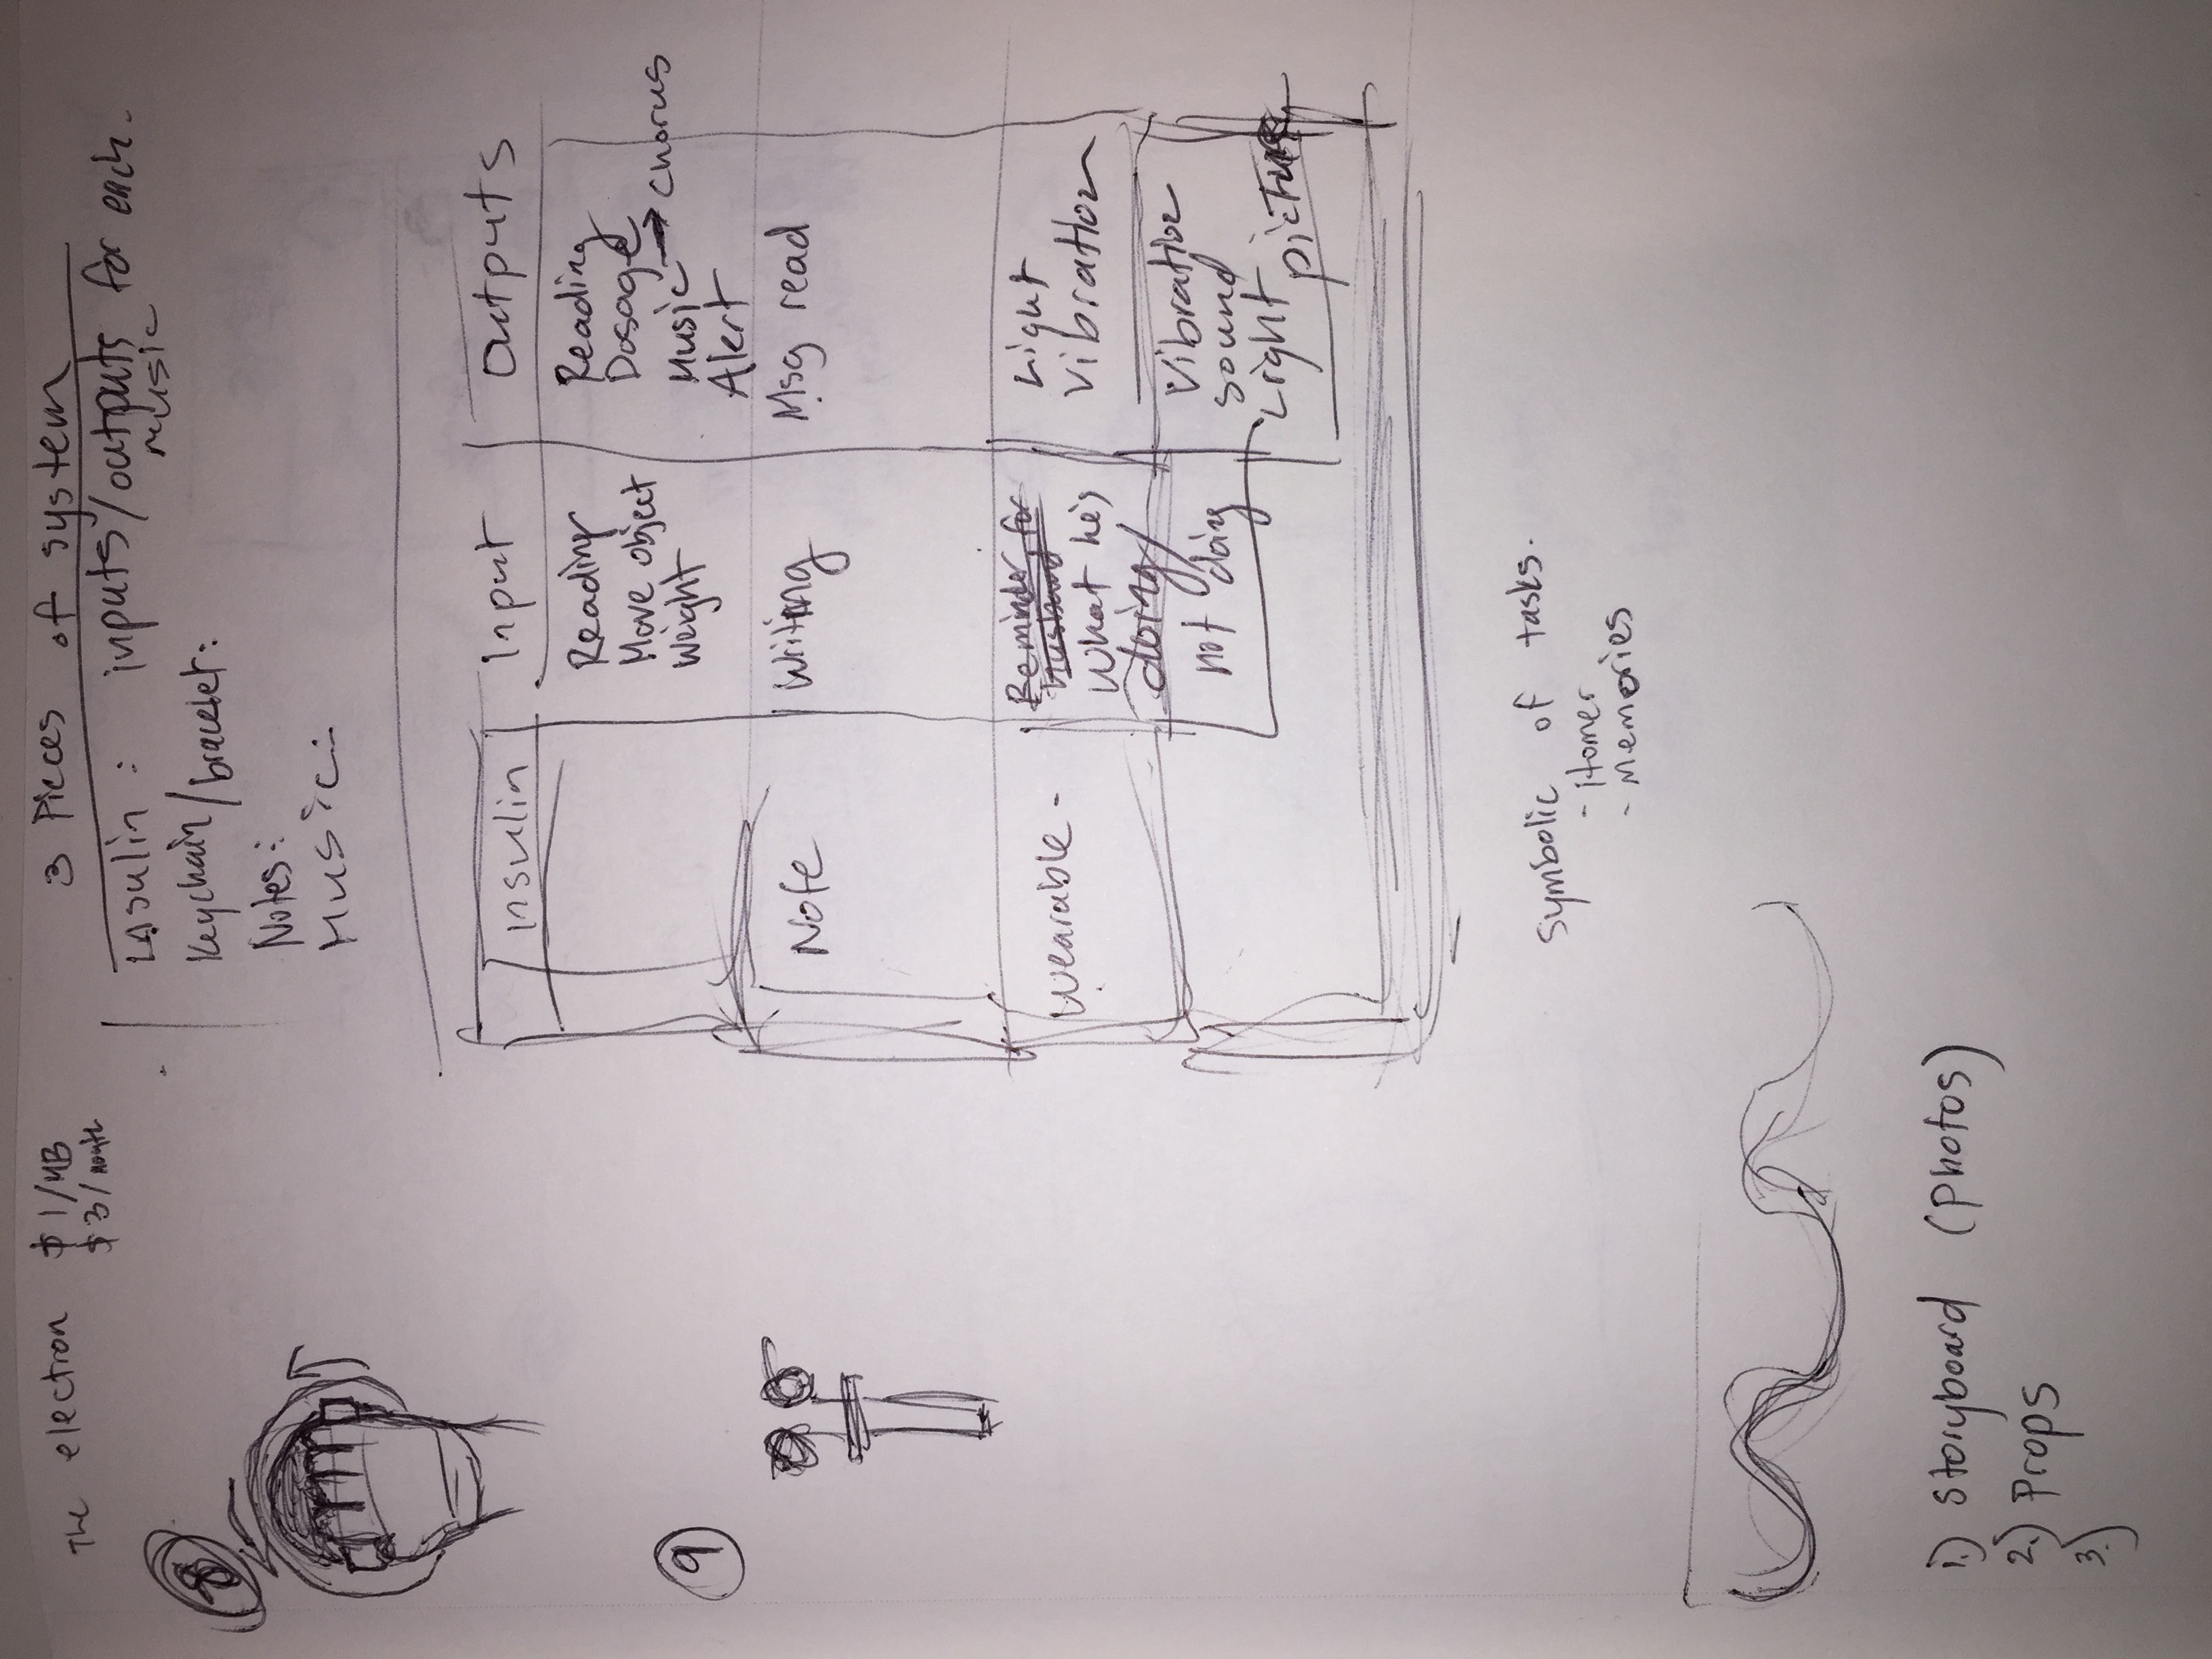 The electron $1/MB
$3/month
3 Pieces of system
Insulin : inputs/outputs for each.
music
Keychain/bracelet:
Notes:
Music:
8
9
Insulin Input Outputs
Reading Reading
Move object Dosage
Weight Music → chorus
Alert
Note Writing Msg read
Wearable - Reminder for Light
husband Vibration
What he's
doing/
not doing
Vibration
sound
Light picture
Symbolic of tasks.
- Homer
- Memories
1.) Storyboard (Photos)
2.) Props
3.)